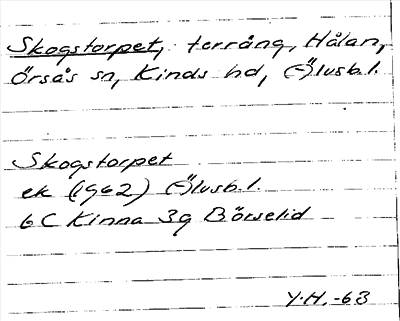 Skogstorpet, terräng, Hålan,
Örsås sn, Kinds hd, (-)Älvsb. l.
Skogstorpet
ek (1962) (-)Älvsb. l.
6C Kinna 3g Börselid
Y.H. -63